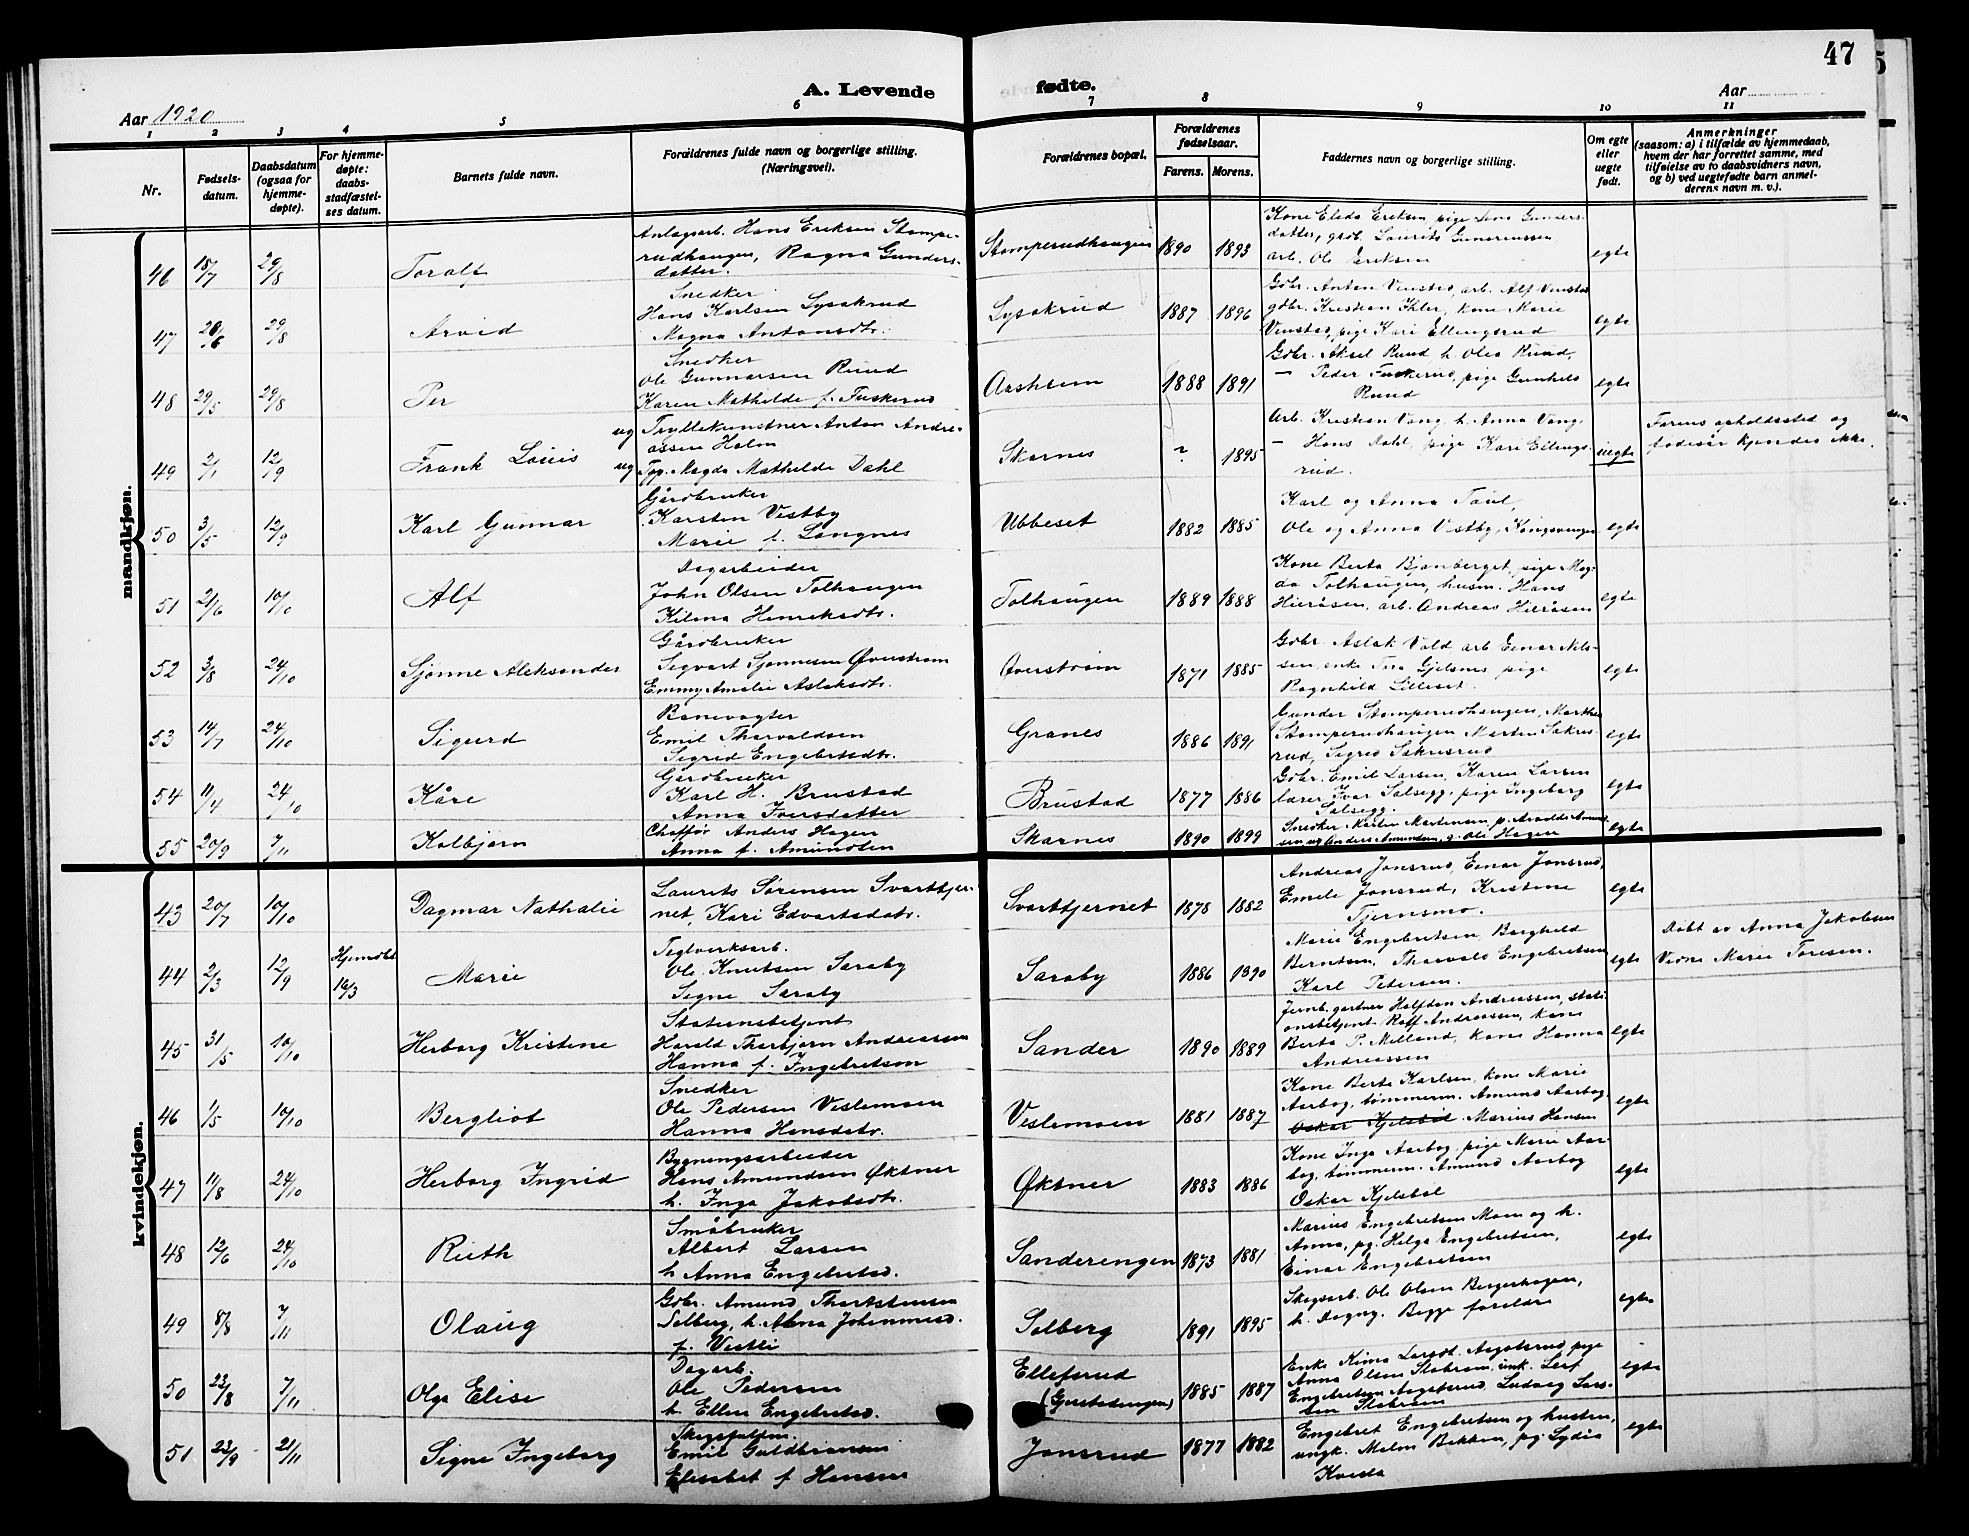 47
A. Levende
fødte.
Aar 1920
Aar
1 2 3 4 5 6
7 8 9 10 11
Nr.
Fødsels-
datum.
Daabsdatum
(ogsaa for
hjemme-
døpte).
For hjemme-
døpte:
daabs-
stadfæstel-
ses datum.
Barnets fulde navn.
Forældrenes fulde navn og borgerlige stilling.
(Næringsvei).
Forældrenes bopæl.
Forældrenes
fødselsaar.
Farens. Morens.
Faddernes navn og borgerlige stilling.
Om egte
eller
uegte
født.
Anmerkninger
(saasom: a) i tilfælde av hjemmedaab,
hvem der har forrettet samme, med
tilføielse av to daabsvidners navn,
og b) ved uegtefødte barn anmel-
derens navn m. v.).
mandkjøn.
46 18/7 29/8 Toralf
Anlagsarb. Hans Eriksen Stompe-
rudhaugen, Ragna Gunders-
datter.
Stomperudhaugen 1890 1893
Kone Eleda Eriksen pige Lina Gunders-
datter, gbr. Laurits Guneriussen
arb. Ole Eriksen
egte
47 20/6 29/8 Arvid
Snedker
Hans Karlsen Lysakrud
Magna Antonsdtr.
Lysakrud 1887 1896
Gbr. Anton Venstad, arb. Alf Venstad
gbr. Kristian Ihler, kone Marie
Venstad, pige Kari Ellingsrud
egte
48 29/5 29/8 Per
Snedker
Ole Gunnarsen Ruud
Karen Mathilde f. Fuskerud
Aasheim 1888 1891
Gbr. Aksel Ruud h. Olea Ruud,
— Peder Fuskerud, pige Gunhild
Ruud
egte
49 2/1 12/9 Frank Louis
ug Tryllekunstner Anton Andre-
assen Holm
ug Tpg. Magda Mathilde Dahl
Skarnes ? 1895
Arb. Kristian Vang, h. Anna Vang
— Hans Dahl, pige Kari Ellings-
rud.
uegte
Farens opholdssted og
fødeår kjendes ikke.
50 3/5 12/9 Karl Gunnar
Gårdbruker
Karsten Vestby
Marie f. Langnes
Ubbeset 1882 1885
Karl og Anna Taul,
Ole og Anna Vestby, Kongsvinger
egte
51 21/6 10/10 Alf
Dagarbeider
John Olsen Tolhaugen
Kilma Henriksdtr.
Tolhaugen 1889 1888
Kone Berta Bjønberget, pige Mag-
da Tolhaugen, husm. Hans
Hieråsen, arb. Andreas Hieråsen
egte
52 3/8 24/10 Sjønne Aleksander
Gårdbruker
Sigvart Sjønnesen Øverstrøm
Emmy Amalie Aslaksdtr.
Øverstrøm 1871 1885
Gbr. Aslak Vold arb Einar Nils-
sen, enke Tina Gjelsnes pige
Ragnhild Lilleset.
egte
53 14/7 24/10 Sigurd
Banevogter
Emil Thorvaldsen
Sigrid Engebretsdtr.
Granes 1886 1891
Gunder Stomperudhaugen, Marthe
Stomperudhaugen Martin Sakris-
rud, Sigrid Sakrisrud
egte
54 11/4 24/10 Kåre
Gårdbruker
Karl H. Brustad
Anna Iversdatter
Brustad 1877 1886
Gbr. Emil Larsen, Karen Larsen
lærer Ivar Salsegg, pige Ingeborg
Salsegg.
egte
55 20/9 7/11 Kolbjørn
Chaffør Anders Hagen
Anna f. Amundsen
Skarnes 1890 1899
Snedker Martin Martinsen, p. Amund-
sen og Anders Amundsen, g. Ole Hagen
egte
kvindekjøn.
43 20/7 10/10 Dagmar Nathalie
Laurits Sørensen Svarttjer-
net, Kari Edvartsdatr.
Svarttjernet 1878 1882
Andreas Jonsrud, Einar Jonsrud,
Emilie Jonsrud, Kristine
Tjernsmo.
egte
44 2/3 12/9 Hjemdbt 16/3 Marie
Teglverksarb.
Ole Knutsen Saraby
Signe Saraby
Saraby 1886 1890
Marie Engebretsen Borghild
Berntsen, Thorvald Engebretsen
Karl Petersen.
egte
Døbt av Anna Jakobsen
Vidne Marie Toresen.
45 31/5 10/10 Herborg Kristine
Stationsbetjent
Harald Thorbjørn Andreassen
Hanna f. Ingebretsen
Sander 1890 1889
Jernb. gartner Halfdan Andreassen, stati-
onsbetjent Rolf Andreassen, kone
Berta P. Melland, kone Hanna
Andreassen
egte
46 1/5 10/10 Bergliot
Snedker
Ole Pedersen Veslemoen
Hanna Hansdatr.
Veslemoen 1881 1887
Kone Berte Karlsen, kone Marie
Aarbog, tømmerm. Amund Aarbog
Oskar Kjelsbøl Marius Hansen
egte
47 11/8 24/10 Herborg Ingrid
Bygningsarbeider
Hans Amundsen Øktner
h. Inga Jakobsdtr.
Øktner 1883 1886
Kone Inga Aarbog, pige Marie Aar-
bog, tømmerm. Amund Aarbog
Oskar Kjelsbøl
egte
48 12/6 24/10 Ruth
Småbruker
Albert Larsen
h. Anna Engebretsd.
Sanderengen 1873 1881
Marius Engebretsen Moen og h.
Anna, pg. Helga Engebretsen,
Einar Engebretsen
egte
49 8/8 7/11 Olaug
Gbr. Amund Thorstensen
Solberg, h. Anna Johannesd.
f. Vestli
Solberg 1891 1895
Skogsarb. Ole Olsen Bergerhagen,
h. Dagny. Begge forældre
egte
50 23/8 7/11 Olga Elise
Dagarb.
Ole Pedersen
h. Ellen Engebretsd.
Ellefsrud
1885 1887
Enke Kima Larsdt. Aagotsrud pige
Anna Olsen Slobraan, ink. Leif
Engebretsen Aagotsrud, Ludvig Lars-
sen Slobraan
egte
51 23/9 21/11 Signe Ingeborg
Emil Guldbransen
Elisabet f Hansen
Jonsrud 1877 1882
Engebret Engebretsen og hustru,
ungk. Malm Bekken, pg. Lydia
Kveda
egte